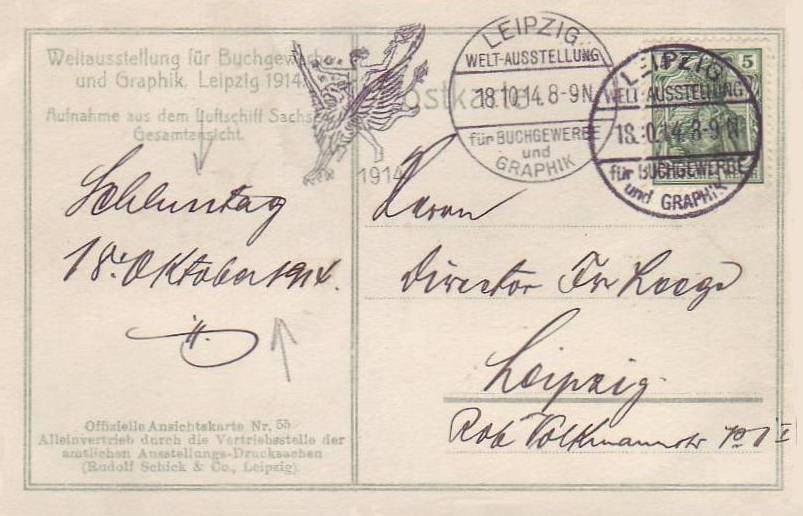 Weltausstellung für Buchgewerbe
und Graphik, Leipzig 1914
Aufnahme aus dem Luftschiff Sachsen
Gesamtansicht.
Postkarte
1914
LEIPZIG
WELT-AUSSTELLUNG
18.10.14.8-9N.
für BUCHGEWERBE
und
GRAPHIK
LEIPZIG
WELT-AUSSTELLUNG
18.10.14.8-9N.
für BUCHGEWERBE
und GRAPHIK
5
Schlusstag
18. Oktober 1914.
Herrn
Director Fr
Leipzig.
Rob Volkmannstr
Offizielle Ansichtskarte Nr. 55
Alleinvertrieb durch die Vertriebsstelle der
amtlichen Ausstellungs-Drucksachen
(Rudolf Schick & Co., Leipzig).